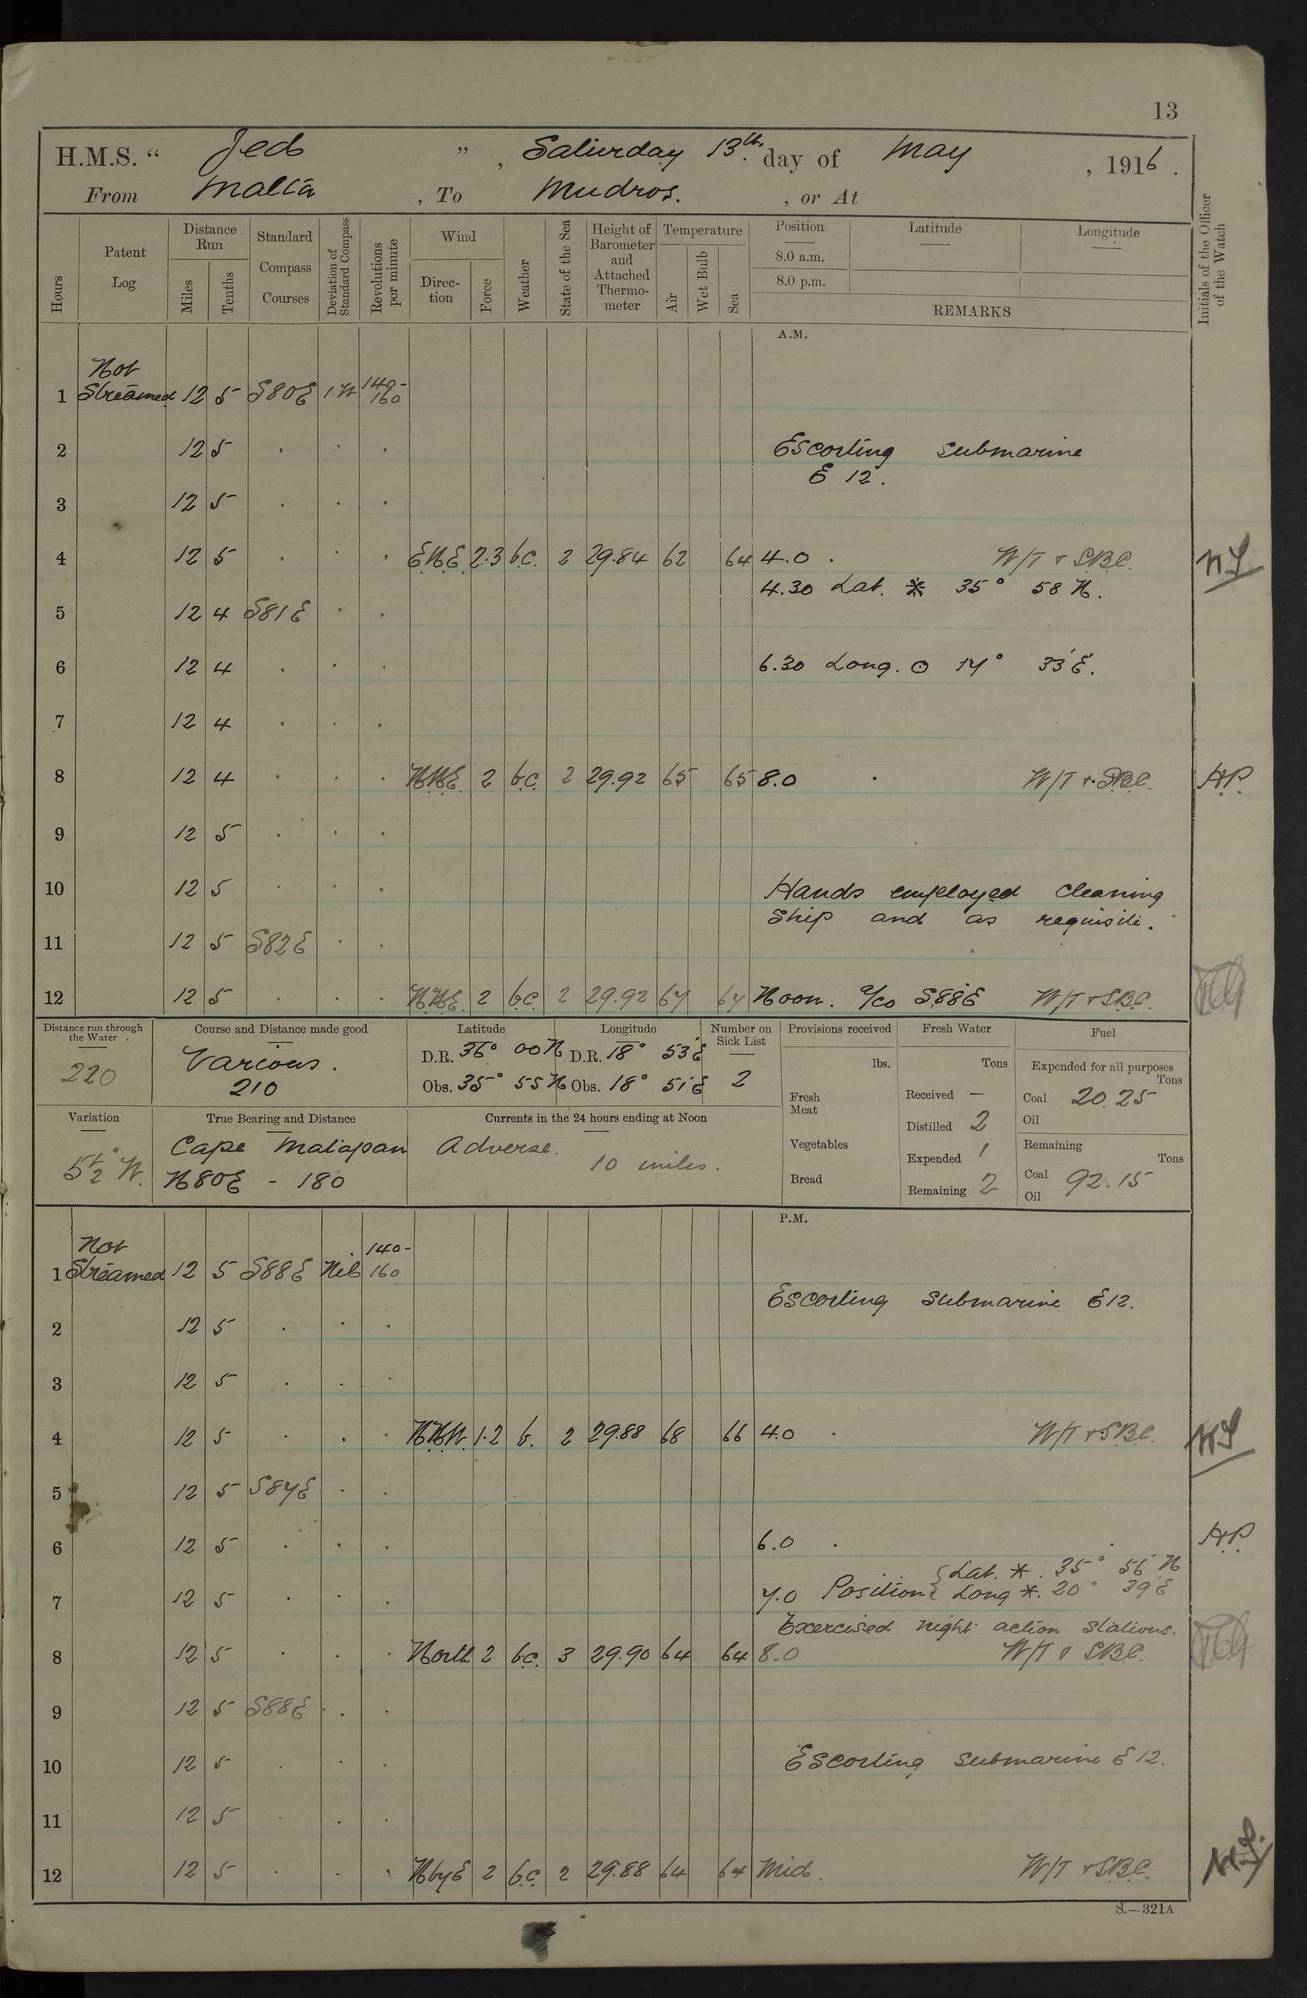 13
H.M.S. “ Jed ” , Saturday 13th. day of May , 1916 .
From Malta , To Mudros. , or At
Hours
Patent Log
Distance Run
Miles
Tenths
Standard Compass Courses
Deviation of Standard Compass
Revolutions per minute
Wind
Direc-tion
Force
Weather
State of the Sea
Height of Barometer and Attached Thermo-meter
Temperature
Air
Wet Bulb
Sea
Position
8.0 a.m.
8.0 p.m.
Latitude
Longitude
REMARKS
Initials of the Officer of the Watch
A.M.
Not
1 Streamed 12 5 S80E 1W 140-160
2 12 5 . . . Escorting submarine
E 12.
3 12 5 . . .
4 12 5 . . . E.N.E. 2.3 b.c. 2 29.84 62 64 4.0 . W/T & S.B.C.
4.30 Lat. * 35° 58 N.
5 12 4 S81E . .
6 12 4 . . . 6.30 Long. ⊙ 17° 33' E.
7 12 4 . . .
8 12 4 . . . N.N.E. 2 b.c. 2 29.92 65 65 8.0 . W/T & S.B.C. H.P.
9 12 5 . . .
10 12 5 . . . Hands employed cleaning
ship and as requisite.
11 12 5 S82E . .
12 12 5 . . . N.N.E. 2 b.c. 2 29.92 67 67 Noon. a/co S88E W/T & S.B.C.
Distance run through the Water .
220
Course and Distance made good
Various.
210
Latitude
D.R. 36° 00 N
Obs. 35° 55 N
Longitude
D.R. 18° 53' E
Obs. 18° 51' E
Number on Sick List
2
Provisions received
lbs.
Fresh Meat
Vegetables
Bread
Fresh Water
Tons
Received —
Distilled 2
Expended 1
Remaining 2
Fuel
Expended for all purposes
Tons
Coal 20.25
Oil
Remaining
Tons
Coal 92.15
Oil
Variation
5½° W.
True Bearing and Distance
Cape Matapan
N80E - 180
Currents in the 24 hours ending at Noon
Adverse. 10 miles.
P.M.
Not
1 Streamed 12 5 S88E Nil 140-160
Escorting submarine E12.
2 12 5 . . .
3 12 5 . . .
4 12 5 . . . N.N.W. 1.2 b. 2 29.88 68 66 4.0 . W/T & S.B.C.
5 12 5 S87E . .
6 12 5 . . . 6.0 . . H.P.
7 12 5 . . . 7.0 Position { Lat. *. 35° 56' N
Long *. 20° 39' E
Exercised night action stations.
8 12 5 . . . North 2 b.c. 3 29.90 64 64 8.0 W/T & S.B.C.
9 12 5 S88E . .
10 12 5 . . . Escorting submarine E 12.
11 12 5 . . .
12 12 5 . . . NbyE 2 b.c. 2 29.88 64 64 Mid. W/T & S.B.C.
S.—321A